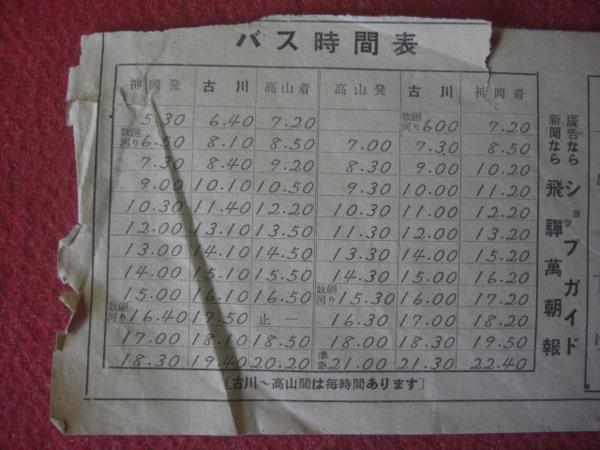 バス時間表
神岡発 古川 高山着 高山発 古川 神岡着
5.30 6.40 7.20 数廻河り 6.00 7.20
数廻河り 6.50 8.10 8.50 7.00 7.30 8.50
7.30 8.40 9.20 8.30 9.00 10.20
9.00 10.10 10.50 9.30 10.00 11.20
10.30 11.40 12.20 10.30 11.00 12.20
12.00 13.10 13.50 11.30 12.00 13.20
13.00 14.10 14.50 13.30 14.00 15.20
14.00 15.10 15.50 14.30 15.00 16.20
15.00 16.10 16.50 数廻河り 15.30 16.00 17.20
数廻河り 16.40 17.50 止— 16.30 17.00 18.20
17.00 18.10 18.50 18.00 18.30 19.50
18.30 19.40 20.20 準急 21.00 21.30 22.40
〔古川〜高山間は毎時間あります〕
廣告なら ショップガイド
新聞なら 飛驒萬朝報